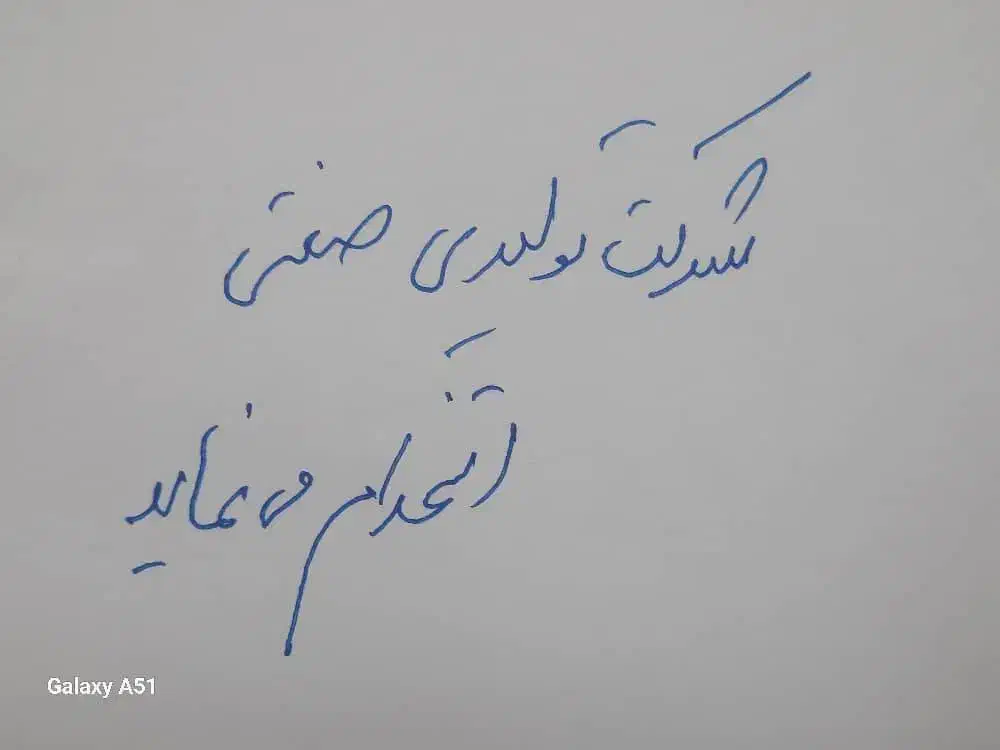 شرکت تولیدی صنعتی
استخدام می نماید
Galaxy A51